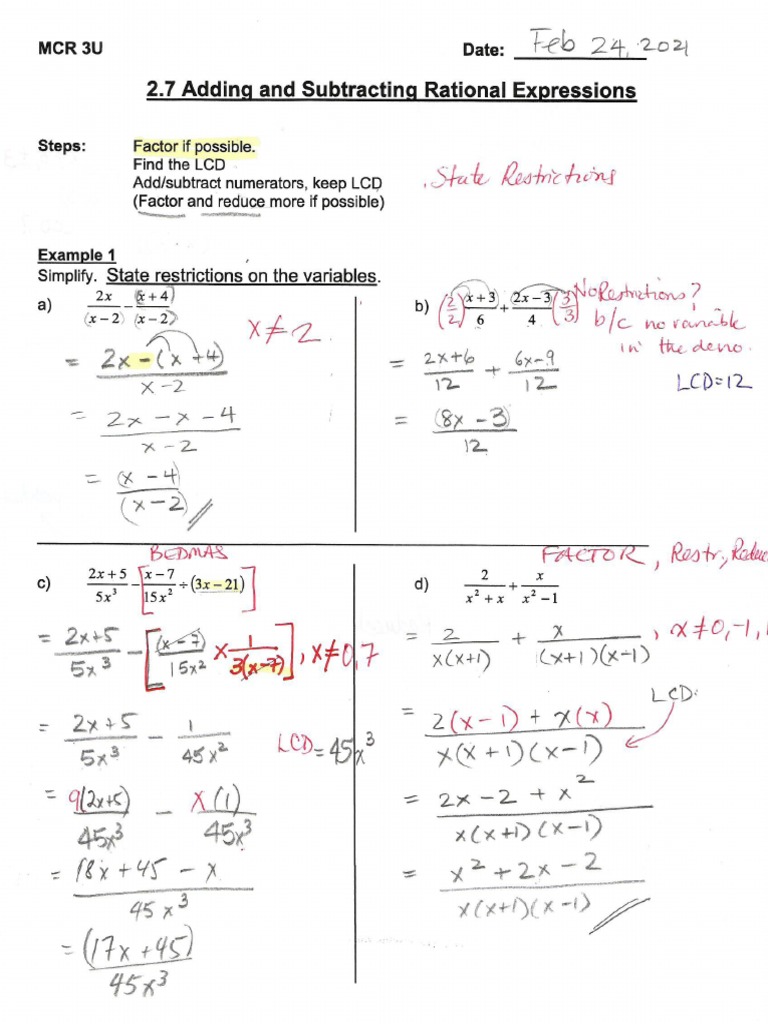 MCR 3U
Date: Feb 24, 2021
2.7 Adding and Subtracting Rational Expressions
Steps: Factor if possible.
Find the LCD
Add/subtract numerators, keep LCD
(Factor and reduce more if possible)
. State Restrictions
Example 1
Simplify. State restrictions on the variables.
a) 2x/(x-2) - (x+4)/(x-2)
x≠2
= (2x-(x+4))/(x-2)
= (2x-x-4)/(x-2)
= (x-4)/(x-2)
b) (2/2) (x+3)/6 + (2x-3)/4 (3/3)
No Restrictions?
b/c no variable
in the deno.
LCD=12
= (2x+6)/12 + (6x-9)/12
= (8x-3)/12
BEDMAS
c) (2x+5)/5x³ - [(x-7)/15x² ÷ (3x-21)]
= (2x+5)/5x³ - [(x-7)/15x² × 1/3(x-7)], x≠0,7
= (2x+5)/5x³ - 1/45x²
LCD = 45x³
= 9(2x+5)/45x³ - x(1)/45x³
= (18x+45-x)/45x³
= (17x+45)/45x³
FACTOR, Restr, Reduc
d) 2/(x²+x) + x/(x²-1)
= 2/x(x+1) + x/(x+1)(x-1), x≠0,-1,1
LCD:
= (2(x-1)+x(x))/x(x+1)(x-1)
= (2x-2+x²)/x(x+1)(x-1)
= (x²+2x-2)/x(x+1)(x-1)